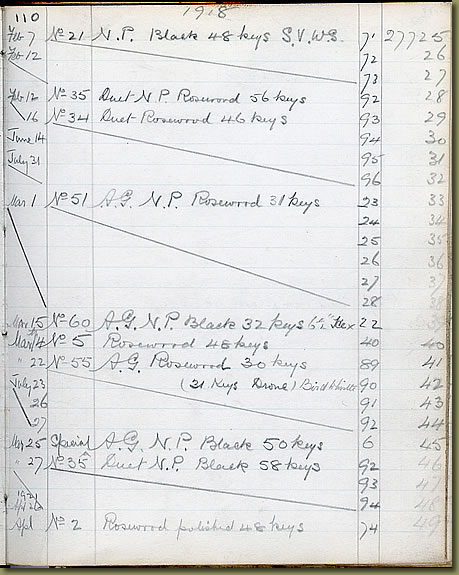 110 1918
Feb 7 No 21 N.P. Black 48 keys S.V.W.S. 71 27725
Feb 12 72 26
73 27
Feb 12 No 35 Duet N.P. Rosewood 56 keys 92 28
" 16 No 34 Duet Rosewood 46 keys 93 29
June 14 94 30
July 31 95 31
96 32
Mar 1 No 51 A.G. N.P. Rosewood 31 keys 23 33
24 34
25 35
26 36
27 37
28 38
Mar 15 No 60 A.G. N.P. Black 32 keys 6½" Hex 22 39
Mar 14 No 5 Rosewood 48 keys 40 40
" 22 No 55 A.G. Rosewood 30 keys 89 41
July 23 (31 Keys Drone) Bird Whistle 90 42
26 91 43
27 92 44
Mar 25 Special A.G. N.P. Black 50 keys 6 45
" 27 No 35 Duet N.P. Black 58 keys 92 46
93 47
1921 94 48
Apl No 2 Rosewood polished 48 keys 74 49